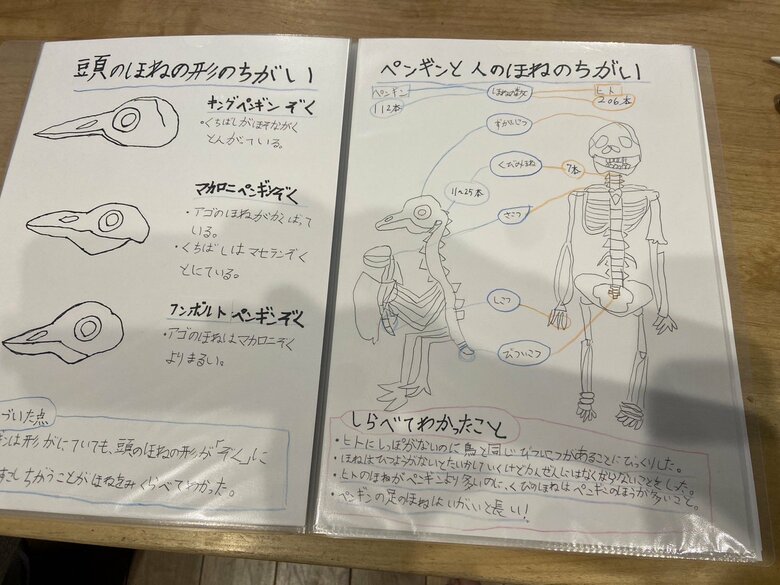 頭のほねの形のちがい
キングペンギンぞく
・くちばしがほそながく
とんがている。
マカロニペンギンぞく
・アゴのほねががくばって
いる。
・くちばしはマゼランぞく
とにている。
フンボルトペンギンぞく
・アゴのほねはマカロニぞく
よりまるい。
づいた点
ンは形がにていても、頭のほねの形が「ぞく」に
すこしちがうことがほねをみくらべてわかった。
ペンギンと人のほねのちがい
ペンギン ほねの数 ヒト
112本 206本
ずがいこつ
くびのほね 7本
11~25本
さこつ
しこつ
びついこつ
しらべてわかったこと
・ヒトにしっぽがないのに鳥と同じびついこつがあることにびっくりした。
・ほねはひつようがないとたいかしていくけどかんぜんにはなくならないことをした。
・ヒトのほねがペンギンより多いのに、くびのほねはペンギンのほうが多いこと。
・ペンギンの足のほねはいがいと長い!